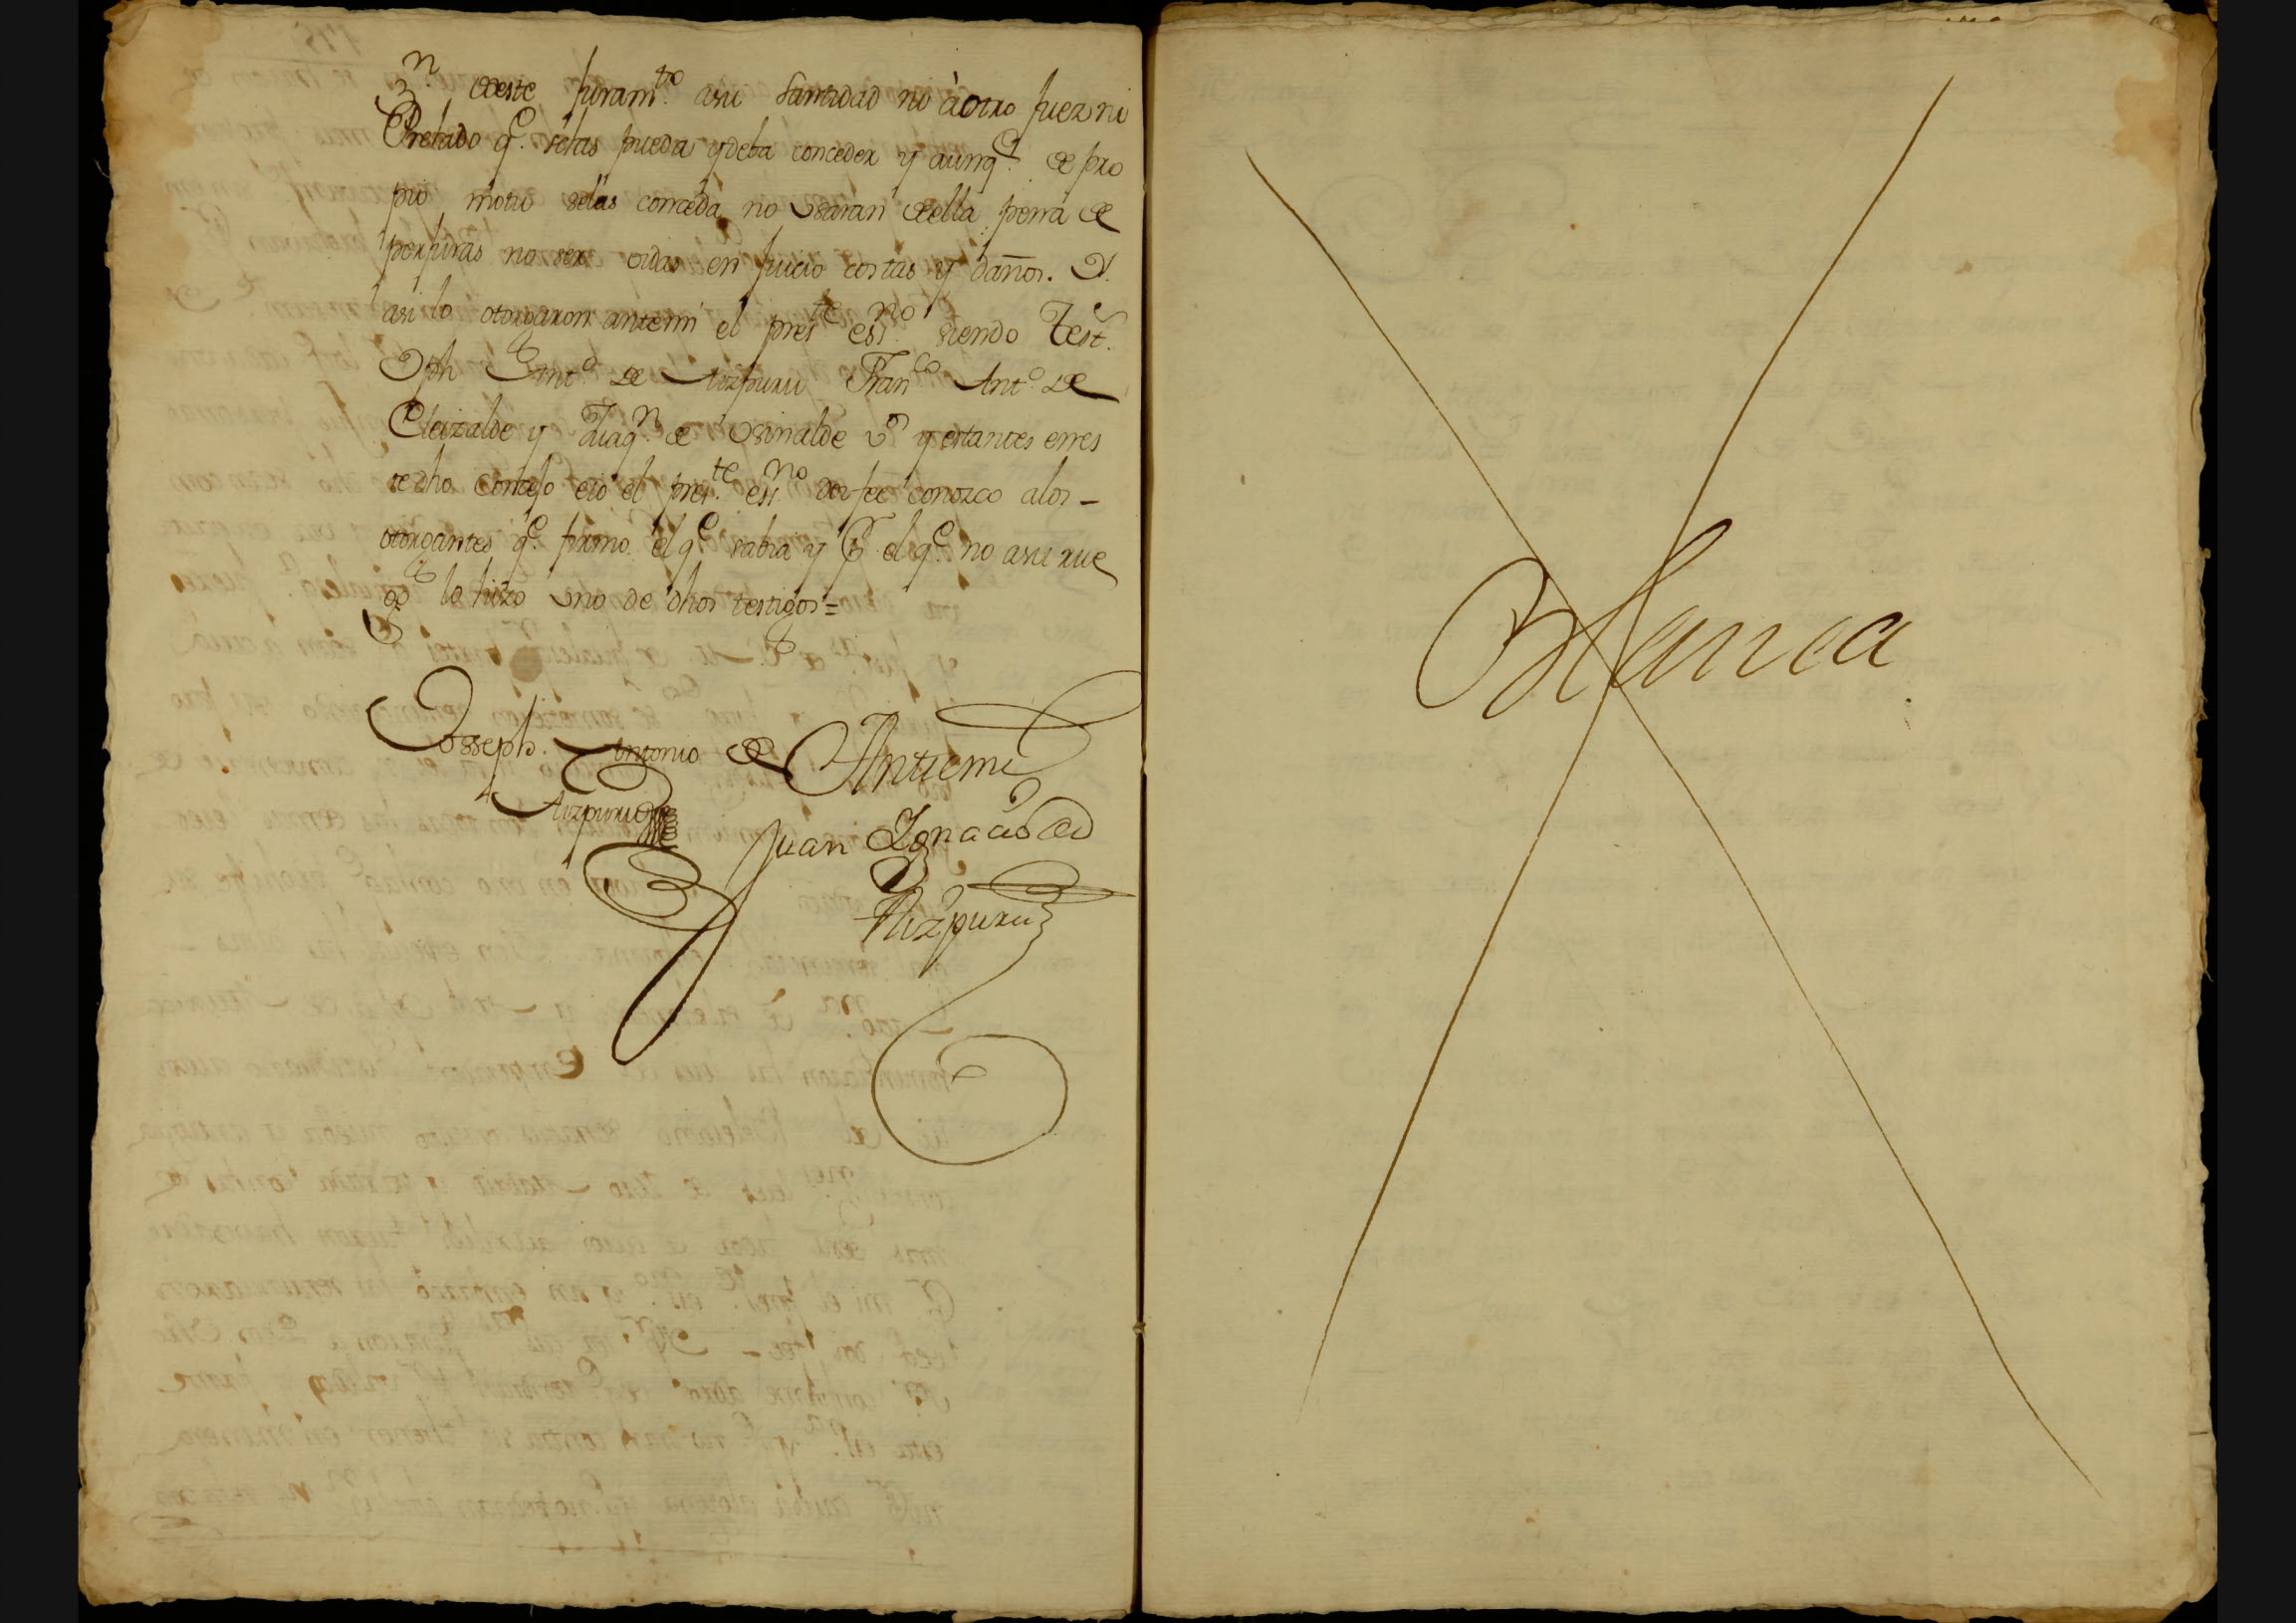 z.n deeste juram.to asu Santidad ni à otro juez ni
Prelado q.e selas pueda y deba conceder y aunq.e de pro
pio motu selas conceda no Usaran deella pena de
perjuras no ser oidas en juicio costas y daños. Y
asi lo otorgaron antemi el pres.te ess.no siendo test.s
Jph Ant.o de Aizpuru Fran.co Ant.o de
Eleizalde y Juaq.n de Usinalde v.s y estantes enes
te dho Concejo eio el pres.te ess.no doi fee conozco alos -
otorgantes q.e firmo el q.e sabia y P. el q.e no asu rue
go lo hizo Uno de dhos testigos =
Josseph. Antonio de
Aizpuru
Antemi
Juan Ignacio de
Aizpuru
Blanca